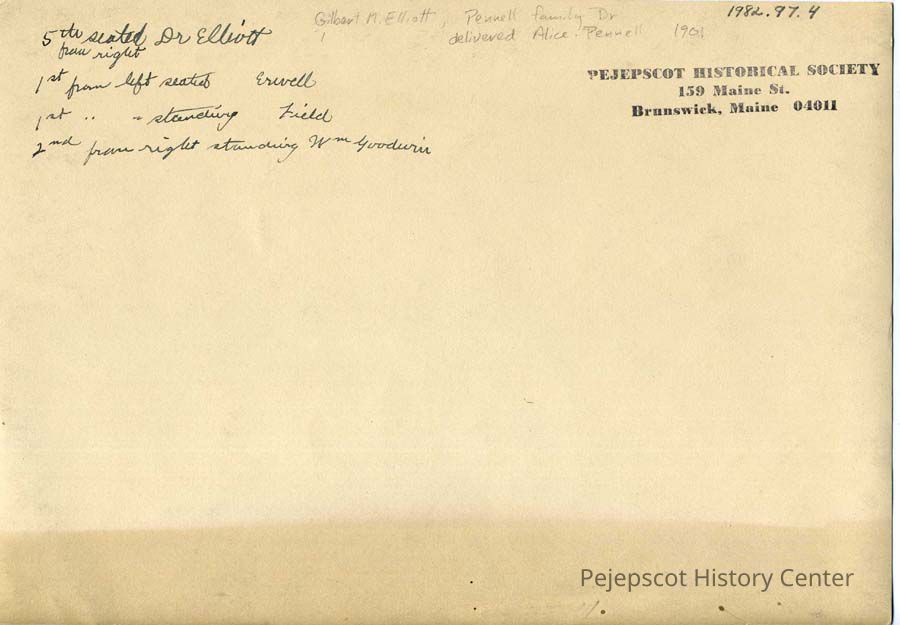 5th seated Dr Elliott
from right
1st from left seated Erwell
1st " " standing Field
2nd from right standing Wm Goodwin
Gilbert M. Elliott, Pennell family Dr
delivered Alice Pennell 1901
1982.97.4
PEJEPSCOT HISTORICAL SOCIETY
159 Maine St.
Brunswick, Maine 04011
Pejepscot History Center